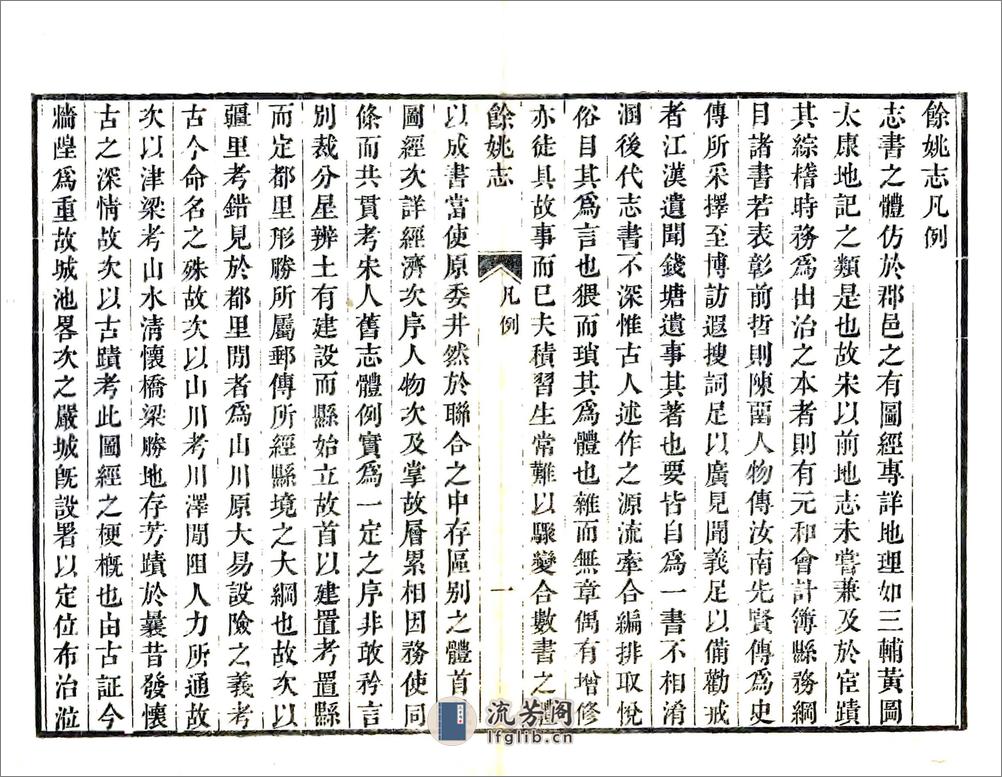 餘姚志凡例
志書之體仿於郡邑之有圖經專詳地理如三輔黃圖
太康地記之類是也故宋以前地志未嘗兼及於宦蹟
其綜稽時務為出治之本者則有元和會計簿縣務綱
目諸書若表彰前哲則陳畱人物傳汝南先賢傳為史
傳所采擇至博訪遐搜詞足以廣見聞義足以備勸戒
者江漢遺聞錢塘遺事其著也要皆自為一書不相淆
溷後代志書不深惟古人述作之源流牽合編排取悅
俗目其為言也猥而瑣其為體也雜而無章偶有增修
亦徒具故事而已夫積習生常難以驟變合數書之體
餘姚志
凡例
一
以成書當使原委井然於聯合之中存區別之體首
圖經次詳經濟次序人物次及掌故層累相因務使同
條而共貫考宋人舊志體例實為一定之序非敢矜言
別裁分星辨土有建設而縣始立故首以建置考置縣
而定都里形勝所屬郵傳所經縣境之大綱也故次以
疆里考錯見於都里閒者為山川原大易設險之義考
古今命名之殊故次以山川考川澤閒阻人力所通故
次以津梁考山水清懷橋梁勝地存芳蹟於曩昔發懷
古之深情故次以古蹟考此圖經之梗概也由古証今
牆隍為重故城池畧次之嚴城旣設署以定位布治涖
流芳阁
lfglib.cn